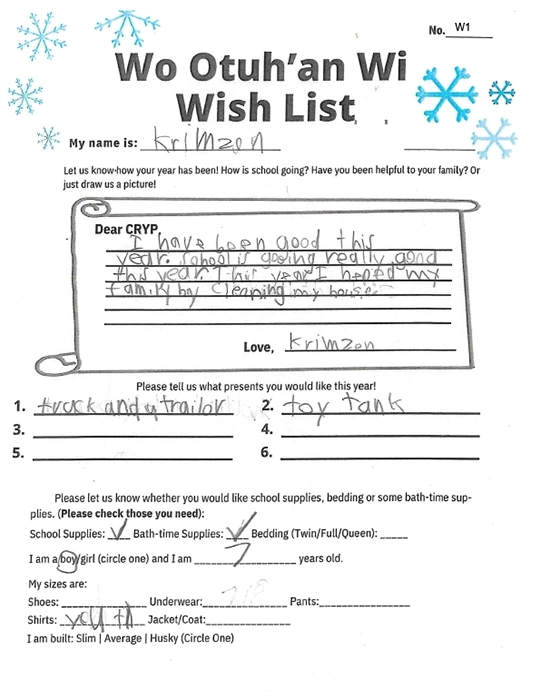 No. W1
Wo Otuh'an Wi
Wish List
My name is: Krimzen
Let us know how your year has been! How is school going? Have you been helpful to your family? Or
just draw us a picture!
Dear CRYP,
I have been good this
year. School is going really good
this year. This year I helped my
family by cleaning my house.
Love, Krimzen
Please tell us what presents you would like this year!
1. truck and a trailor 2. toy tank
3. 4.
5. 6.
Please let us know whether you would like school supplies, bedding or some bath-time sup-
plies. (Please check those you need):
School Supplies: ✓ Bath-time Supplies: ✓ Bedding (Twin/Full/Queen):
I am a boy/girl (circle one) and I am 7 years old.
My sizes are:
Shoes: Underwear: 7/8 Pants:
Shirts: youth Jacket/Coat:
I am built: Slim | Average | Husky (Circle One)